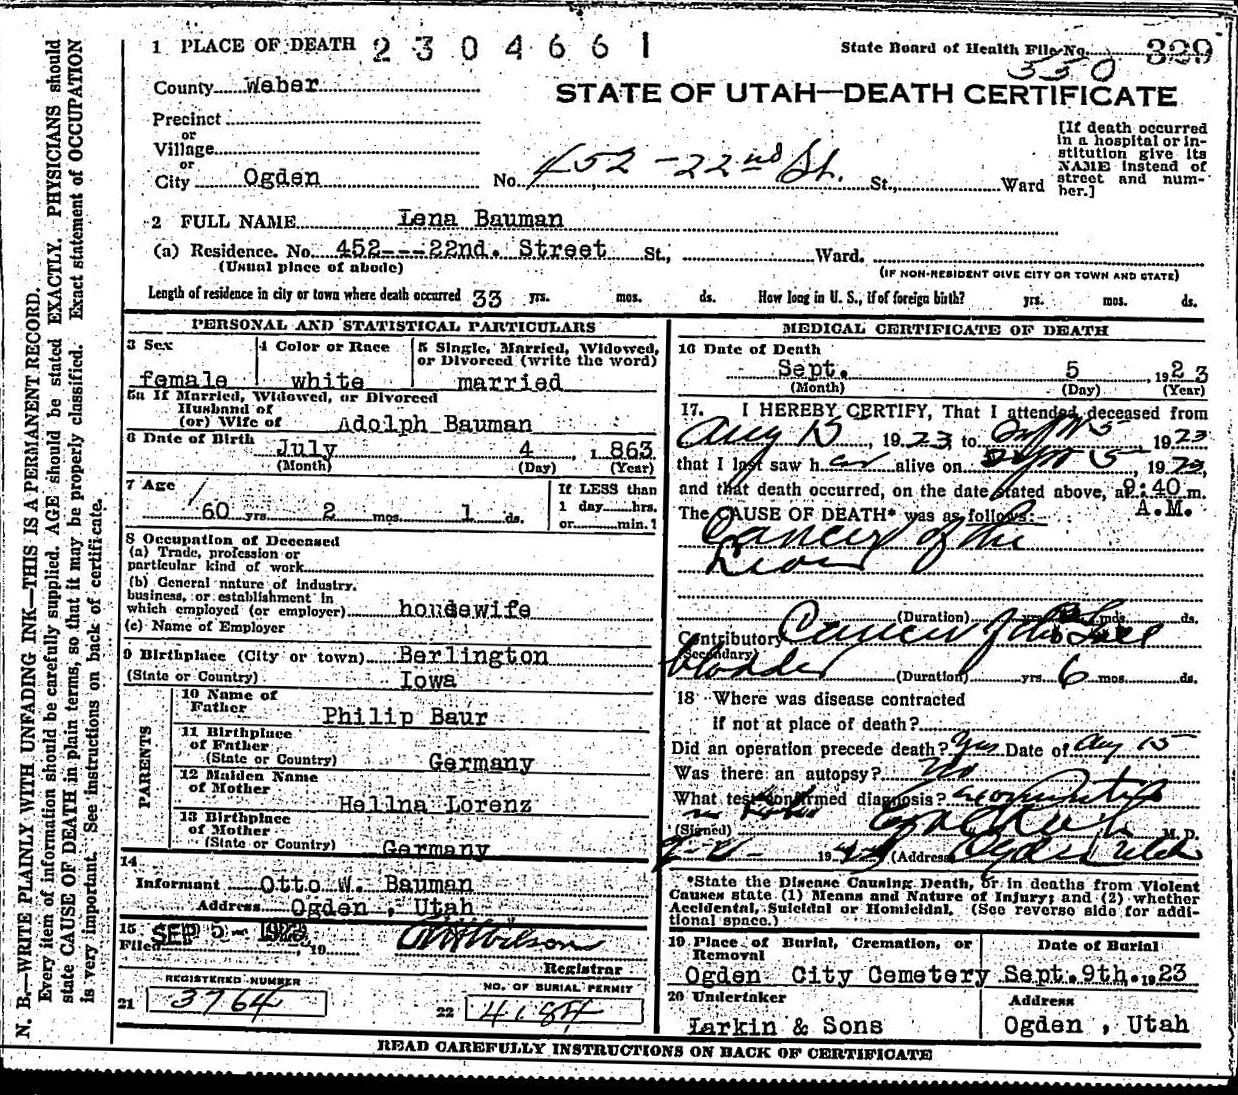 1 PLACE OF DEATH 2304661
State Board of Health File No. 329
330
County Weber
STATE OF UTAH—DEATH CERTIFICATE
Precinct
or
Village
or
City Ogden No. 452 - 22nd St. St., Ward
[If death occurred in a hospital or in-
stitution give its
NAME instead of
street and num-
ber.]
2 FULL NAME Lena Bauman
(a) Residence. No. 452---22nd. Street St., Ward.
(Usual place of abode) (IF NON-RESIDENT GIVE CITY OR TOWN AND STATE)
Length of residence in city or town where death occurred 33 yrs. mos. ds. How long in U. S., if of foreign birth? yrs. mos. ds.
PERSONAL AND STATISTICAL PARTICULARS
3 Sex female
4 Color or Race white
5 Single, Married, Widowed,
or Divorced (write the word)
married
5a If Married, Widowed, or Divorced
Husband of
(or) Wife of Adolph Bauman
6 Date of Birth July 4, 1863
(Month) (Day) (Year)
7 Age 60 yrs. 2 mos. 1 ds.
If LESS than
1 day hrs.
or min.?
8 Occupation of Deceased
(a) Trade, profession or
particular kind of work
(b) General nature of industry,
business, or establishment in
which employed (or employer) housewife
(c) Name of Employer
9 Birthplace (City or town) Berlington
(State or Country) Iowa
PARENTS
10 Name of
Father Philip Baur
11 Birthplace
of Father
(State or Country) Germany
12 Maiden Name
of Mother Hellna Lorenz
13 Birthplace
of Mother
(State or Country) Germany
14
Informant Otto W. Bauman
Address Ogden, Utah
15
Filed SEP 5 - 1923, 19 Wilson
Registrar
REGISTERED NUMBER
21 3764
NO. OF BURIAL PERMIT
22 4184
MEDICAL CERTIFICATE OF DEATH
16 Date of Death
Sept. 5, 1923
(Month) (Day) (Year)
17. I HEREBY CERTIFY, That I attended deceased from
Aug 15, 1923 to Sept 5 1923
that I last saw her alive on Sept 5, 1923,
and that death occurred, on the date stated above, at 9:40 m.
A.M.
The CAUSE OF DEATH* was as follows:
Cancer of the
Liver
(Duration) yrs. mos. ds.
Contributory Cancer of the Gall
(Secondary)
bladder (Duration) yrs. 6 mos. ds.
18 Where was disease contracted
if not at place of death?
Did an operation precede death? Yes Date of Aug 15
Was there an autopsy? No
What test confirmed diagnosis?
(Signed) M. D.
19 (Address) Ogden Utah
*State the Disease Causing Death, or in deaths from Violent
Causes state (1) Means and Nature of Injury; and (2) whether
Accidental, Suicidal or Homicidal. (See reverse side for addi-
tional space.)
19 Place of Burial, Cremation, or
Removal
Ogden City Cemetery
Date of Burial
Sept. 9th. 1923
20 Undertaker
Larkin & Sons
Address
Ogden, Utah
READ CAREFULLY INSTRUCTIONS ON BACK OF CERTIFICATE
N. B.—WRITE PLAINLY WITH UNFADING INK—THIS IS A PERMANENT RECORD.
Every item of information should be carefully supplied. AGE should be stated EXACTLY. PHYSICIANS should
state CAUSE OF DEATH in plain terms, so that it may be properly classified. Exact statement of OCCUPATION
is very important. See instructions on back of certificate.